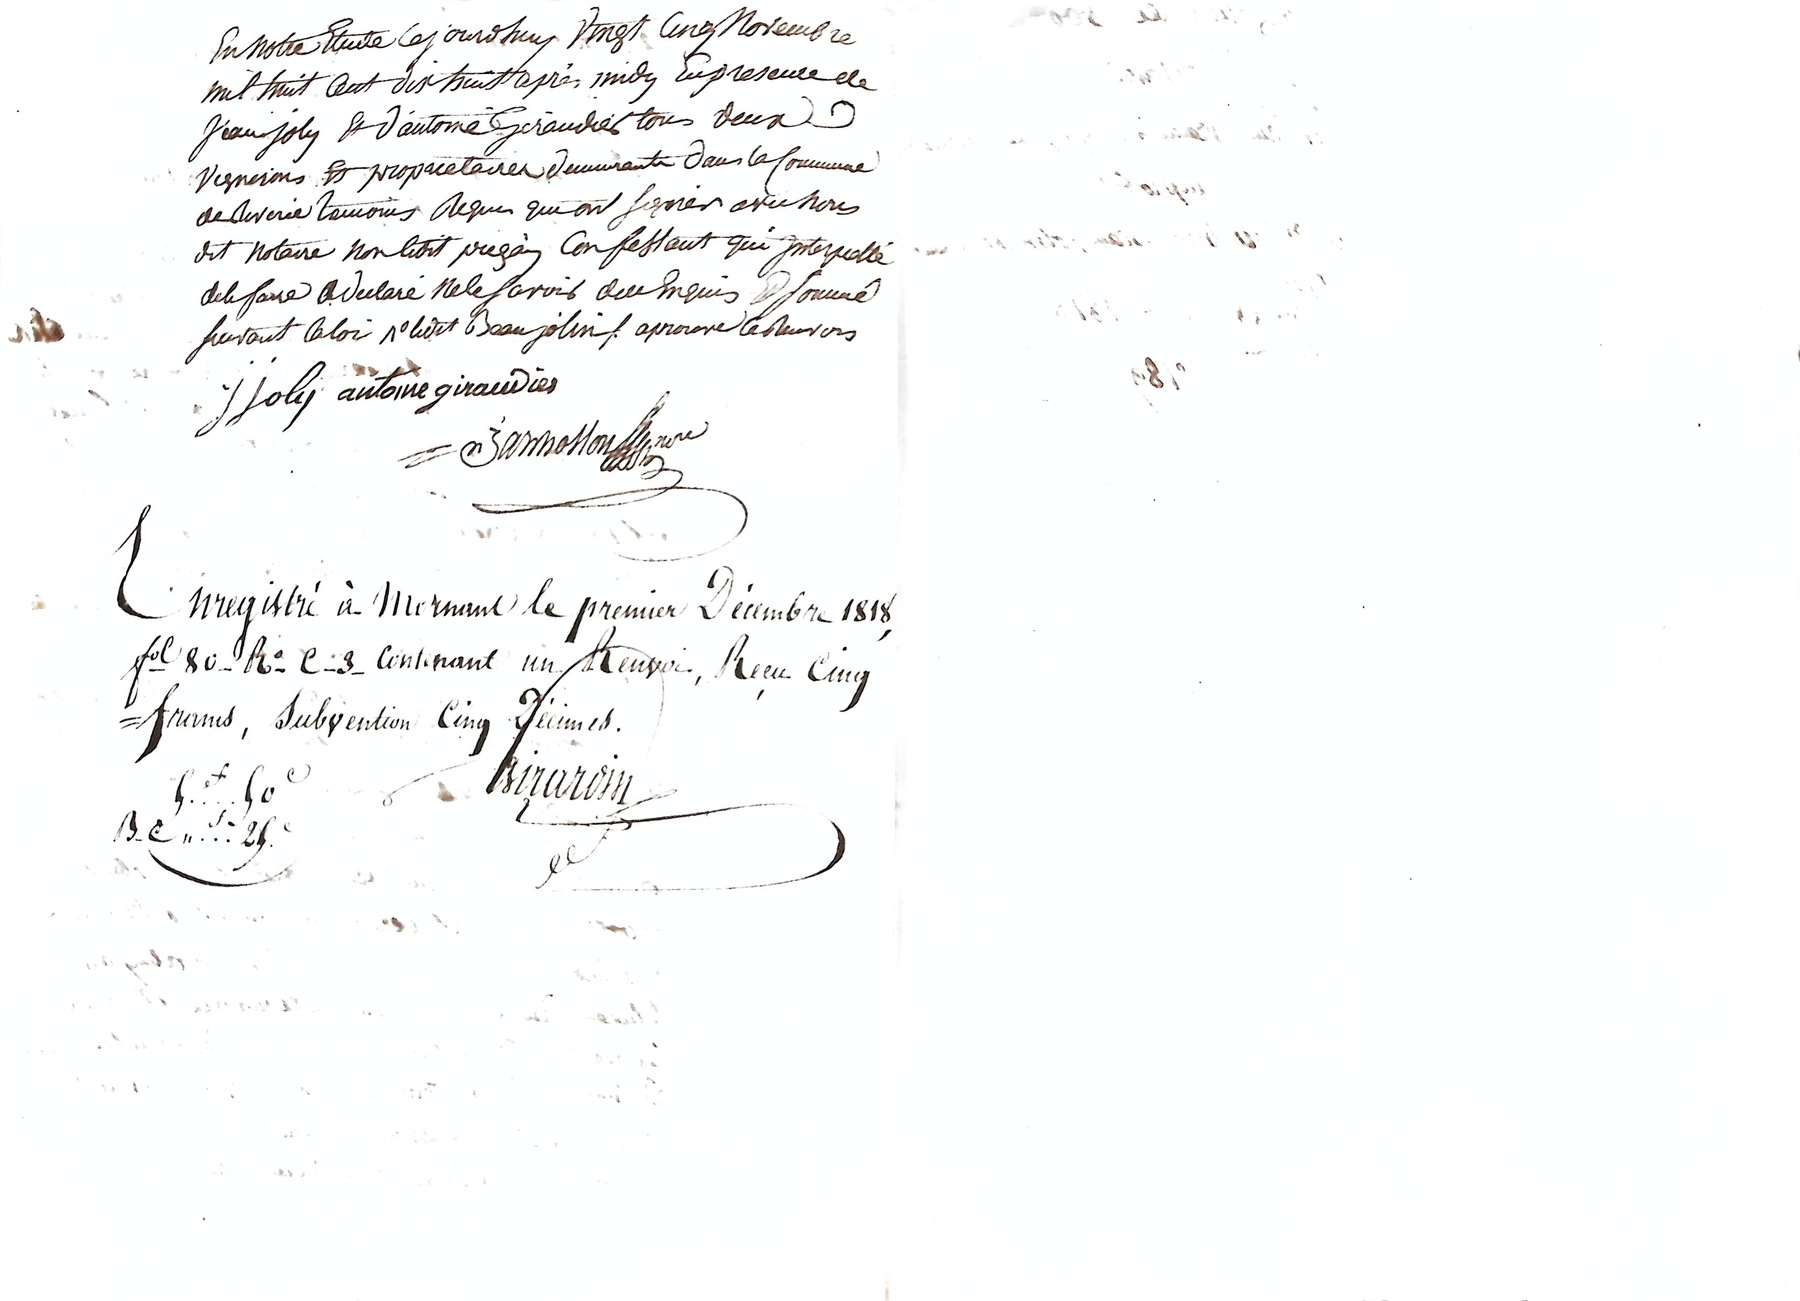 En notre Etude Cejourdhuy Vingt Cinq Novembre
mil huit Cent dix huit après midy En presence de
Jean joly Et d'antoine Giraudier tous deux
Vignerons Et proprietaires demeurants dans la Commune
de temoins Requis qui ont signés avec nous
dit notaire non ledit Confessant qui Interpellé
de le faire a declaré ne le savoir de ce Enquis Et sommé
suivant la loi ledit Beaujolin aprouvé le Renvois
J Joly antoine giraudier
Enregistré à Mornant le premier Décembre 1818,
fol 80 Ro C 3 Contenant un Renvoi, Reçu Cinq
= francs, Subvention Cinq Décimes.
5.f..50c
B. C ,, ... 25.c
Girardin